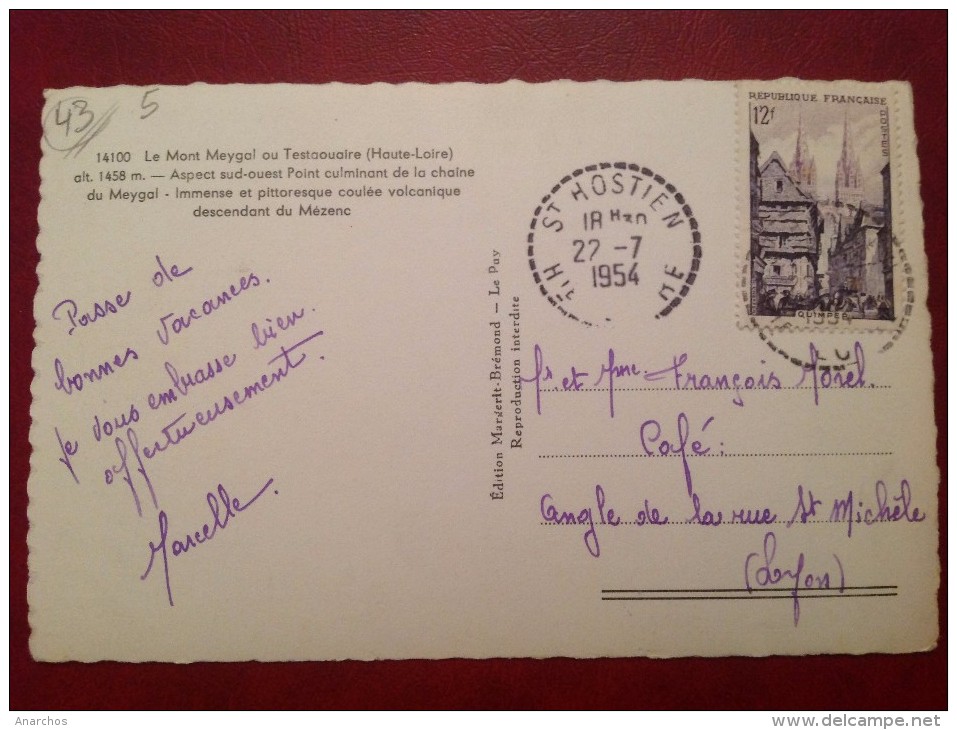 43
5
14100 Le Mont Meygal ou Testaouaire (Haute-Loire)
alt. 1458 m. — Aspect sud-ouest Point culminant de la chaîne
du Meygal - Immense et pittoresque coulée volcanique
descendant du Mézenc
Passe de
bonnes vacances.
Je vous embrasse bien
affectueusement.
Marcelle.
Édition Margerit-Brémond — Le Puy
Reproduction interdite
ST HOSTIEN
18 H
22 -7
1954
RÉPUBLIQUE FRANÇAISE
12f
POSTES
QUIMPER
1954
Mr et Mme. François Morel.
Café:
Angle de la rue St Michèle
(Lyon)
Anarchos
http://www.delcampe.net